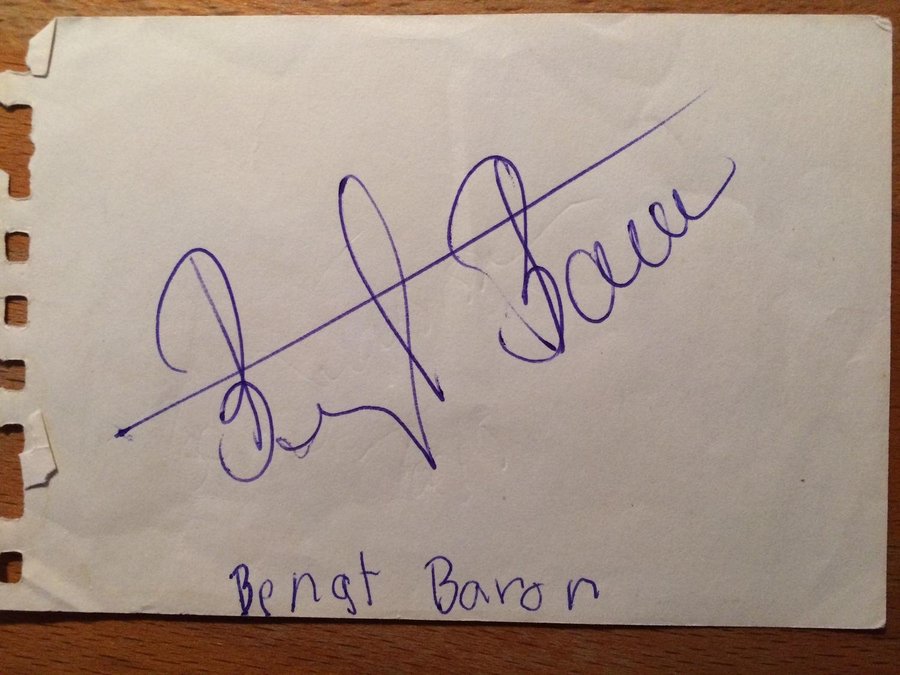 Bengt Baron
Bengt Baron